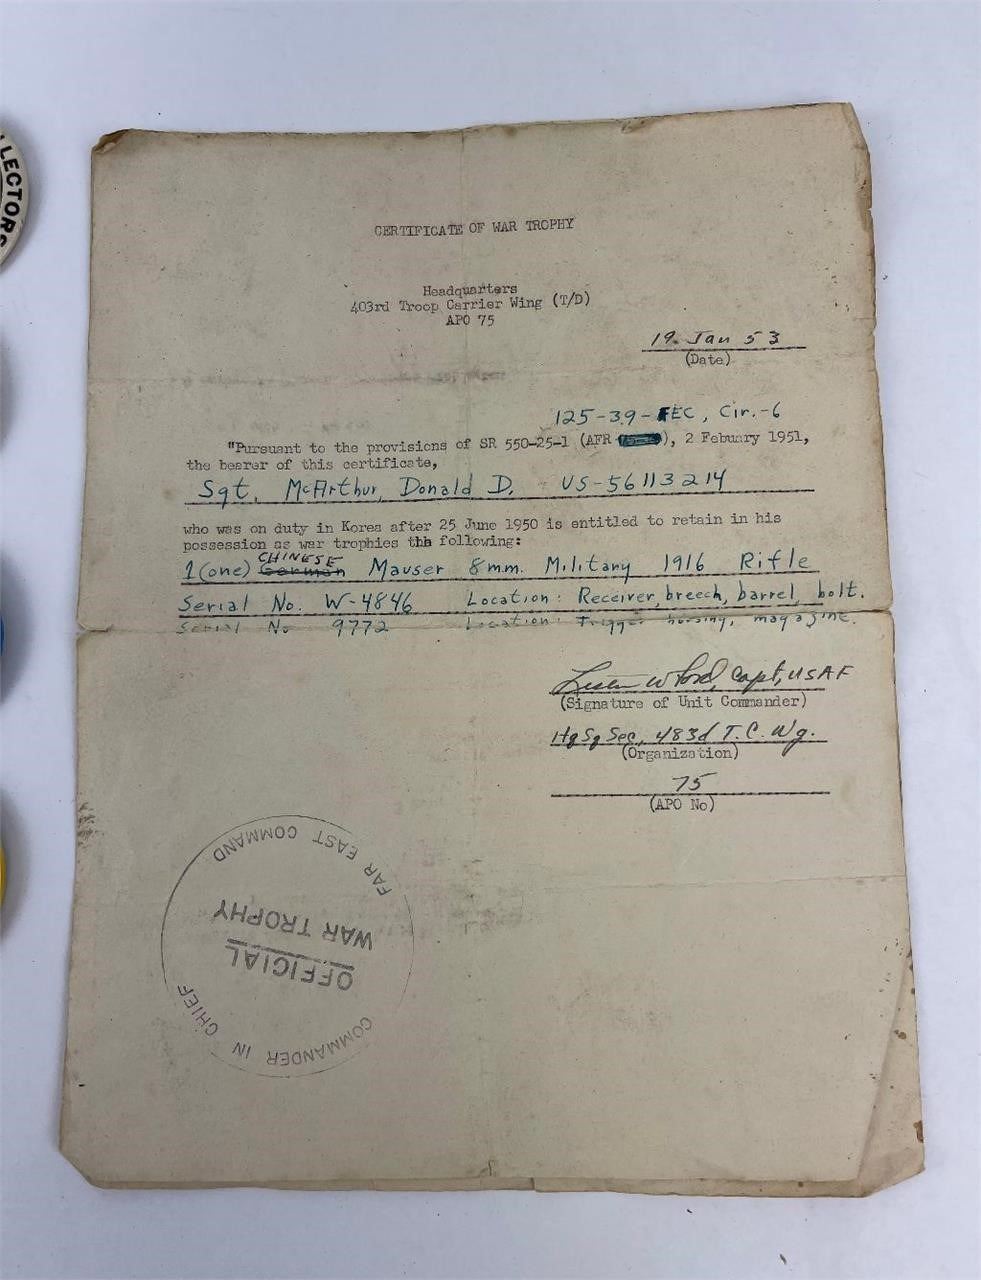 LECTORS
CERTIFICATE OF WAR TROPHY
Headquarters
403rd Troop Carrier Wing (T/D)
APO 75
19 Jan 53
(Date)
125-39-FEC, Cir.-6
"Pursuant to the provisions of SR 550-25-1 (AFR ), 2 Febuary 1951,
the bearer of this certificate,
Sgt. McArthur, Donald D. US-56113214
who was on duty in Korea after 25 June 1950 is entitled to retain in his
possession as war trophies the following:
CHINESE
1 (one) German Mauser 8mm. Military 1916 Rifle
Serial No. W-4846 Location: Receiver, breech, barrel, bolt.
Serial No 9772 Location: Trigger housing, magazine.
Capt, USAF
(Signature of Unit Commander)
Hq Sq Sec, 483d T.C. Wg.
(Organization)
75
(APO No)
COMMANDER IN CHIEF
OFFICIAL
WAR TROPHY
FAR EAST COMMAND